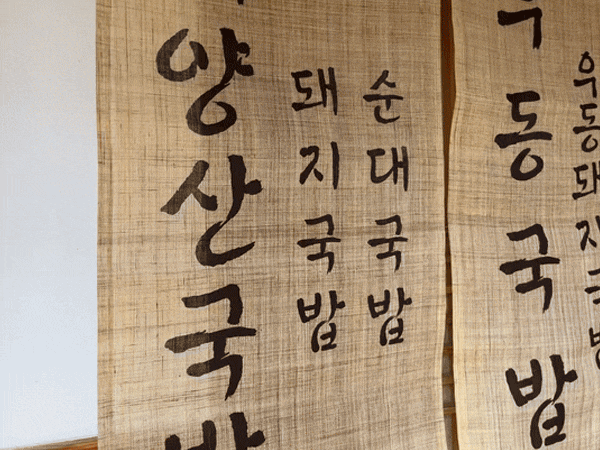 양산국밥
돼지국밥
순대국밥
우동국밥
우동돼지국밥